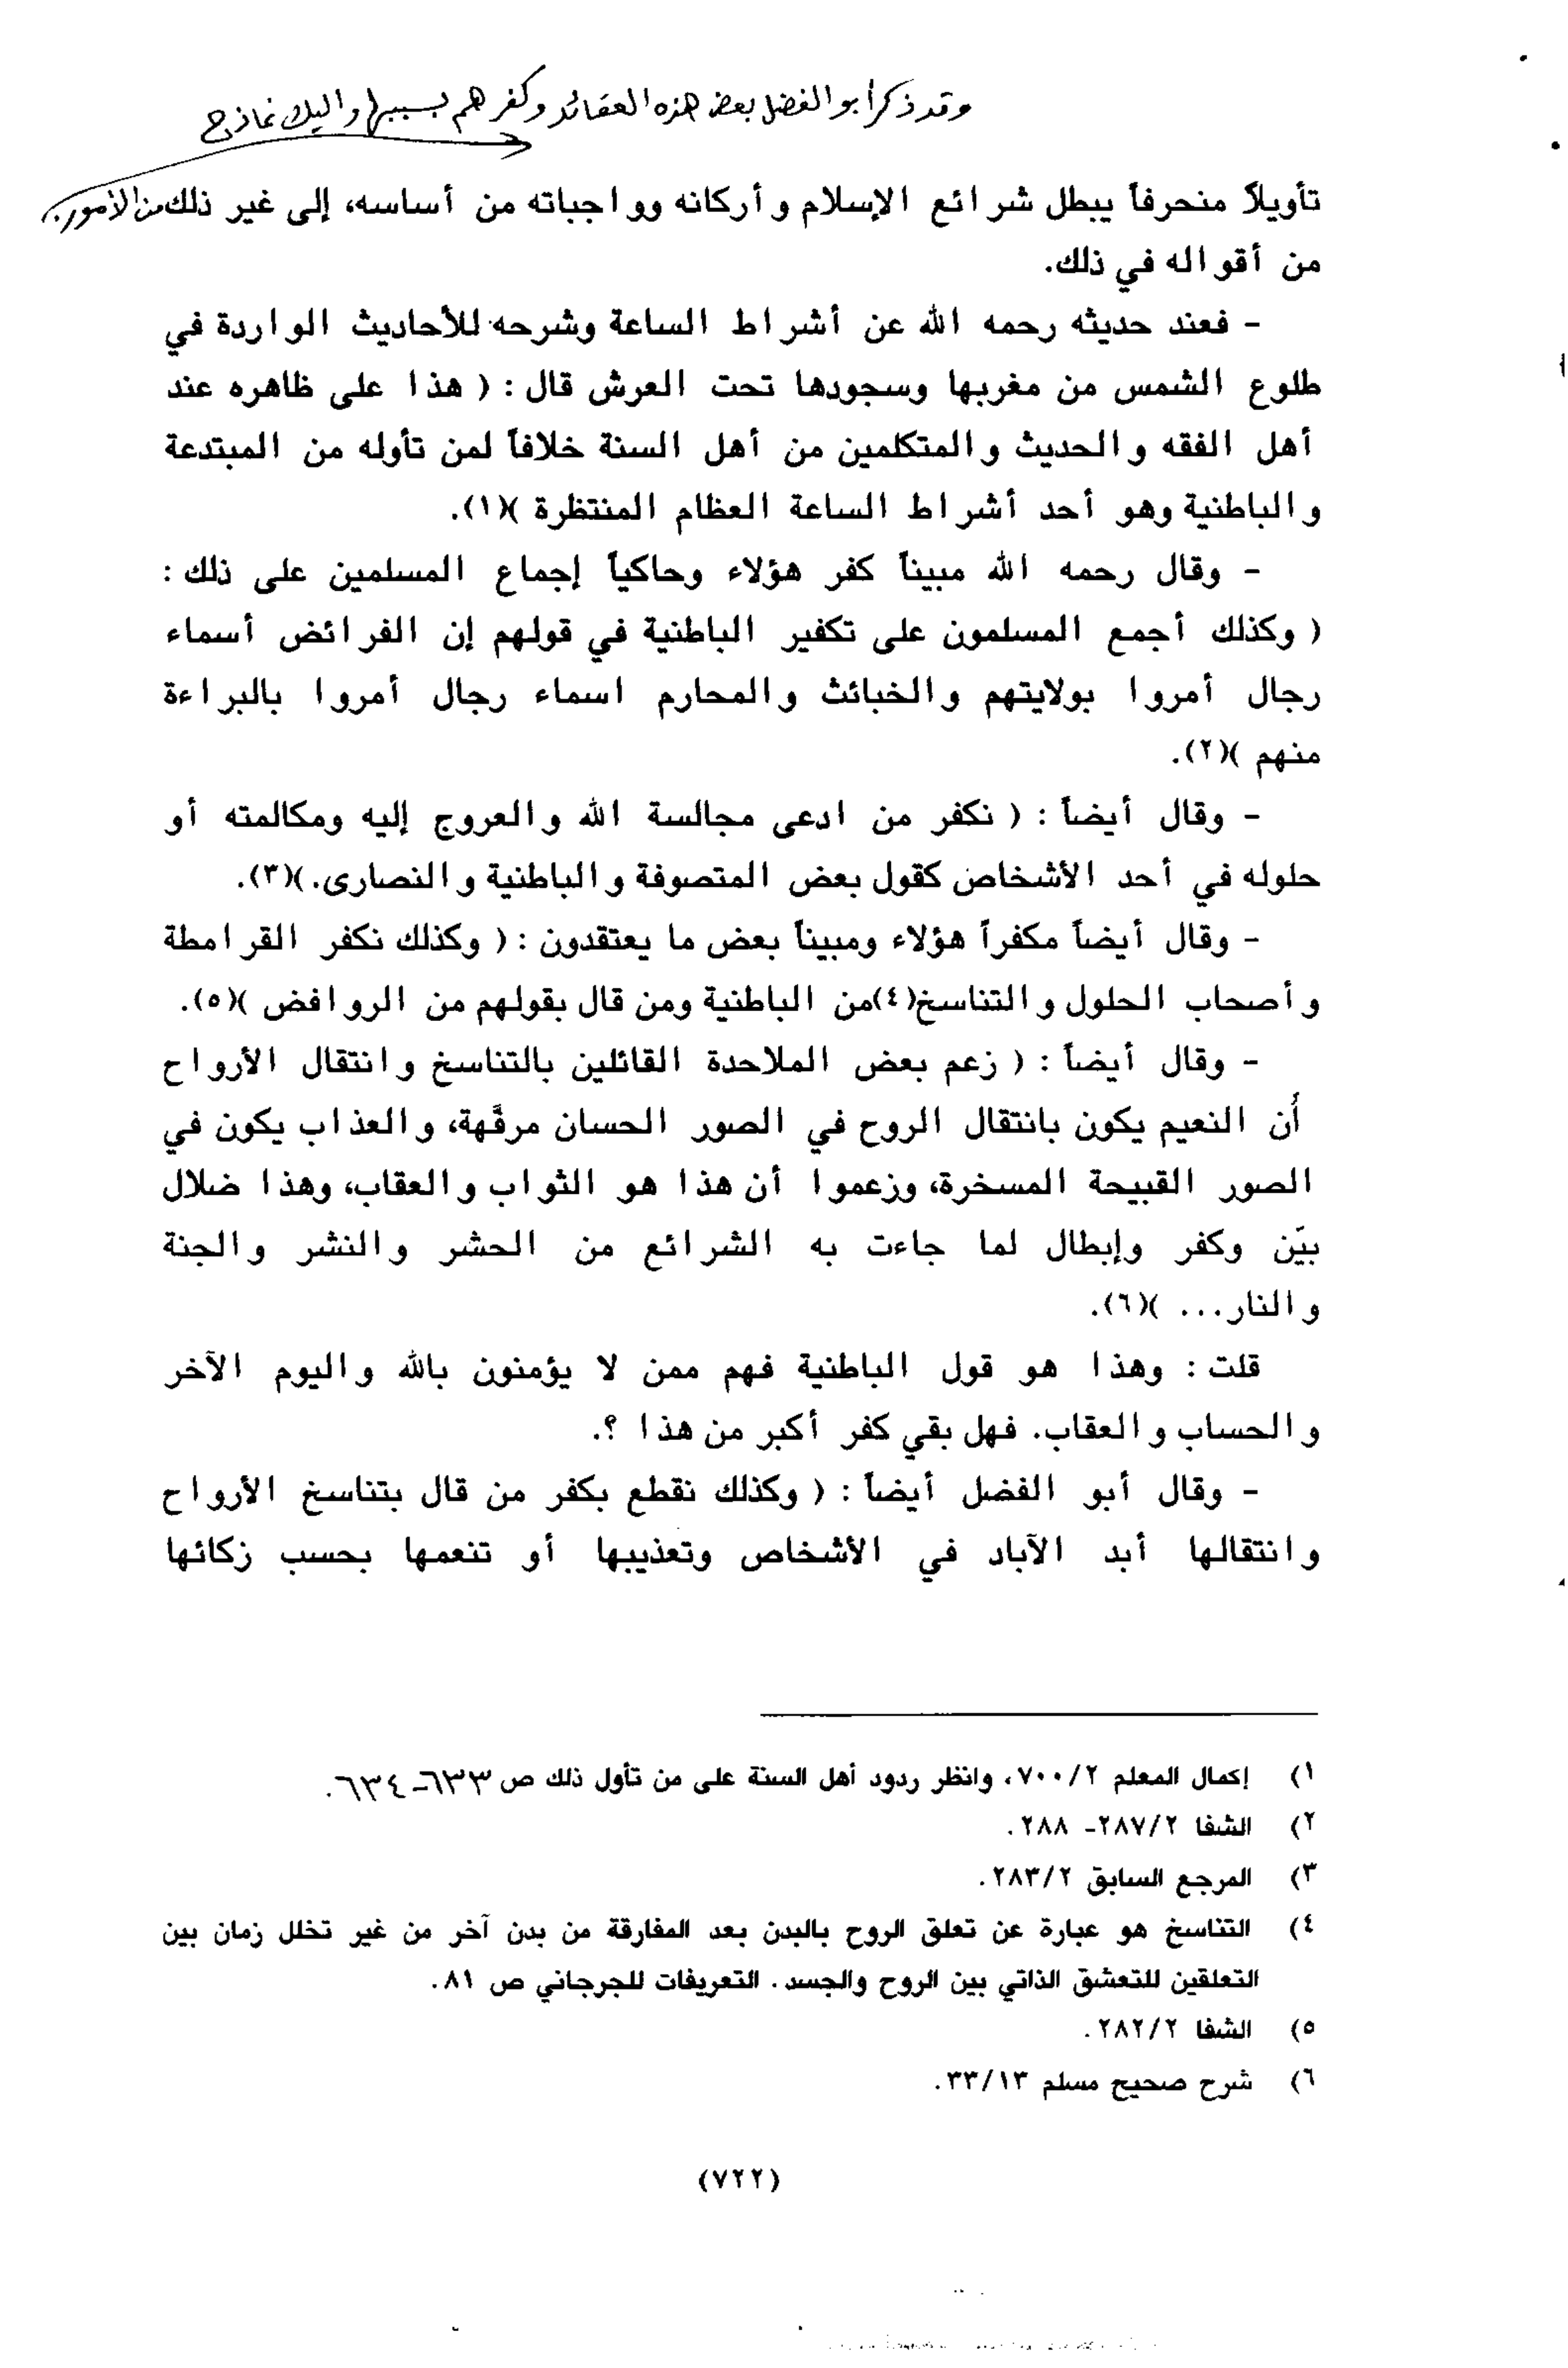 وقد ذكر أبو الفضل بعض هذه العقائد وكفرهم بسببها وإليك نماذج
تأويلاً منحرفاً يبطل شرائع الإسلام وأركانه وواجباته من أساسه، إلى غير ذلك من الأمور.
من أقواله في ذلك.
- فعند حديثه رحمه الله عن أشراط الساعة وشرحه للأحاديث الواردة في
طلوع الشمس من مغربها وسجودها تحت العرش قال : ( هذا على ظاهره عند
أهل الفقه والحديث والمتكلمين من أهل السنة خلافاً لمن تأوله من المبتدعة
والباطنية وهو أحد أشراط الساعة العظام المنتظرة )(١).
- وقال رحمه الله مبيناً كفر هؤلاء وحاكياً إجماع المسلمين على ذلك :
( وكذلك أجمع المسلمون على تكفير الباطنية في قولهم إن الفرائض أسماء
رجال أمروا بولايتهم والخبائث والمحارم اسماء رجال أمروا بالبراءة
منهم )(٢).
- وقال أيضاً : ( نكفر من ادعى مجالسة الله والعروج إليه ومكالمته أو
حلوله في أحد الأشخاص كقول بعض المتصوفة والباطنية والنصارى.)(٣).
- وقال أيضاً مكفراً هؤلاء ومبيناً بعض ما يعتقدون : ( وكذلك نكفر القرامطة
وأصحاب الحلول والتناسخ(٤)من الباطنية ومن قال بقولهم من الروافض )(٥).
- وقال أيضاً : ( زعم بعض الملاحدة القائلين بالتناسخ وانتقال الأرواح
أن النعيم يكون بانتقال الروح في الصور الحسان مرفَّهة، والعذاب يكون في
الصور القبيحة المسخرة، وزعموا أن هذا هو الثواب والعقاب، وهذا ضلال
بيّن وكفر وإبطال لما جاءت به الشرائع من الحشر والنشر والجنة
والنار... )(٦).
قلت : وهذا هو قول الباطنية فهم ممن لا يؤمنون بالله واليوم الآخر
والحساب والعقاب. فهل بقي كفر أكبر من هذا ؟.
- وقال أبو الفضل أيضاً : ( وكذلك نقطع بكفر من قال بتناسخ الأرواح
وانتقالها أبد الآباد في الأشخاص وتعذيبها أو تنعمها بحسب زكائها
١) إكمال المعلم ٧٠٠/٢، وانظر ردود أهل السنة على من تأول ذلك ص ٦٣٣-٦٣٤.
٢) الشفا ٢٨٧/٢- ٢٨٨.
٣) المرجع السابق ٢٨٣/٢.
٤) التناسخ هو عبارة عن تعلق الروح بالبدن بعد المفارقة من بدن آخر من غير تخلل زمان بين
التعلقين للتعشق الذاتي بين الروح والجسد. التعريفات للجرجاني ص ٨١.
٥) الشفا ٢٨٢/٢.
٦) شرح صحيح مسلم ٣٣/١٣.
(٧٢٢)